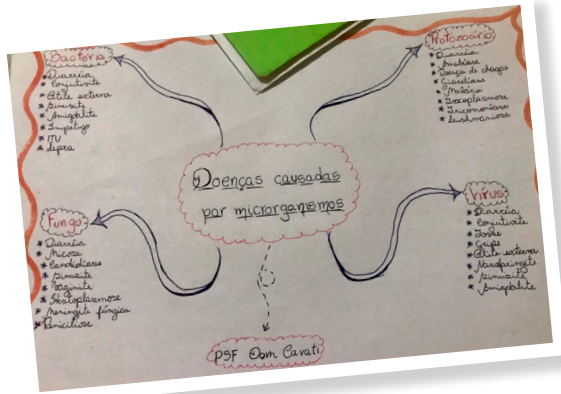 Bactéria
* Diarréia
* Conjutivite
* Otite externa
* Sinusite
* Amigdalite
* Impetigo
* ITU
* Lepra
Protozoário
* Diarréia
* Amebíase
* Doença de chagas
* Giardíase
* Malária
* Toxoplasmose
* Tricomoníase
* Leishmaniose
Doenças causadas
por microrganismos
Fungo
* Diarréia
* Micose
* Candidíase
* Sinusite
* Vaginite
* Histoplasmose
* Meningite fúngica
Vírus
* Diarréia
* Conjutivite
* Tosse
* Gripe
* Otite externa
* Sinusite
* Amigdalite
PSF Dom Cavati